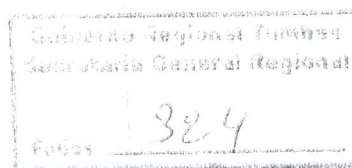 Gobierno Regional Tumbes
Secretaría General Regional
Folios 324